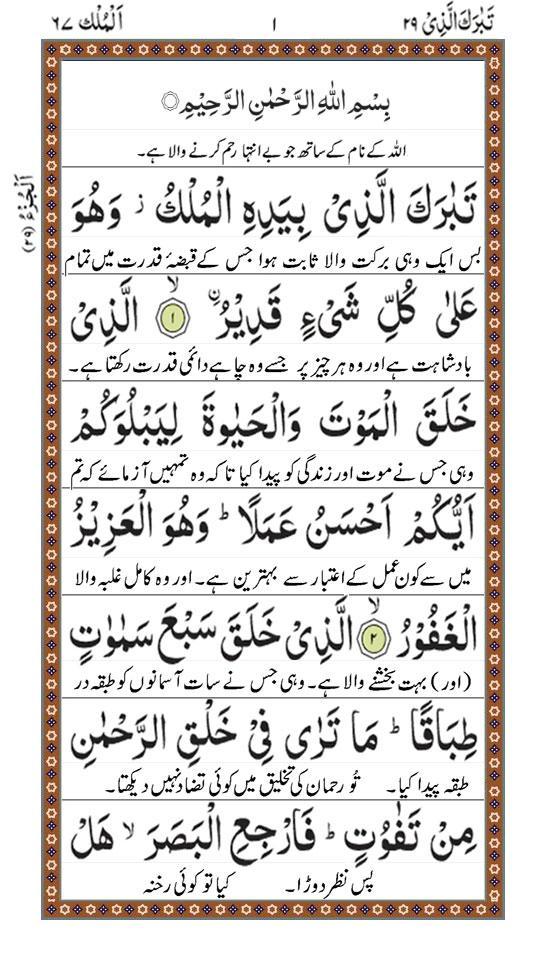 تَبٰرَكَ الَّذِىْ ٢٩
١
اَلْمُلْك ٦٧
اَلْجُزْءُ (٢٩)
بِسْمِ اللّٰهِ الرَّحْمٰنِ الرَّحِيْمِ
اللہ کے نام کے ساتھ جو بے انتہا رحم کرنے والا ہے۔
تَبٰرَكَ الَّذِىْ بِيَدِهِ الْمُلْكُ ز وَهُوَ
بس ایک وہی برکت والا ثابت ہوا جس کے قبضۂ قدرت میں تمام
عَلٰى كُلِّ شَىْءٍ قَدِيْرُ ۨ ۙ ١ الَّذِىْ
بادشاہت ہے اور وہ ہر چیز پر جسے وہ چاہے دائمی قدرت رکھتا ہے۔
خَلَقَ الْمَوْتَ وَالْحَيٰوةَ لِيَبْلُوَكُمْ
وہی جس نے موت اور زندگی کو پیدا کیا تا کہ وہ تمہیں آزمائے کہ تم
اَيُّكُمْ اَحْسَنُ عَمَلًا ؕ وَهُوَ الْعَزِيْزُ
میں سے کون عمل کے اعتبار سے بہترین ہے۔ اور وہ کامل غلبہ والا
الْغَفُوْرُ ۙ ٢ الَّذِىْ خَلَقَ سَبْعَ سَمٰوٰتٍ
(اور) بہت بخشنے والا ہے۔ وہی جس نے سات آسمانوں کو طبقہ در
طِبَاقًا ؕ مَا تَرٰى فِىْ خَلْقِ الرَّحْمٰنِ
طبقہ پیدا کیا۔ تُو رحمان کی تخلیق میں کوئی تضاد نہیں دیکھتا۔
مِنْ تَفٰوُتٍ ؕ فَارْجِعِ الْبَصَرَ ۙ هَلْ
پس نظر دوڑا۔ کیا تو کوئی رخنہ